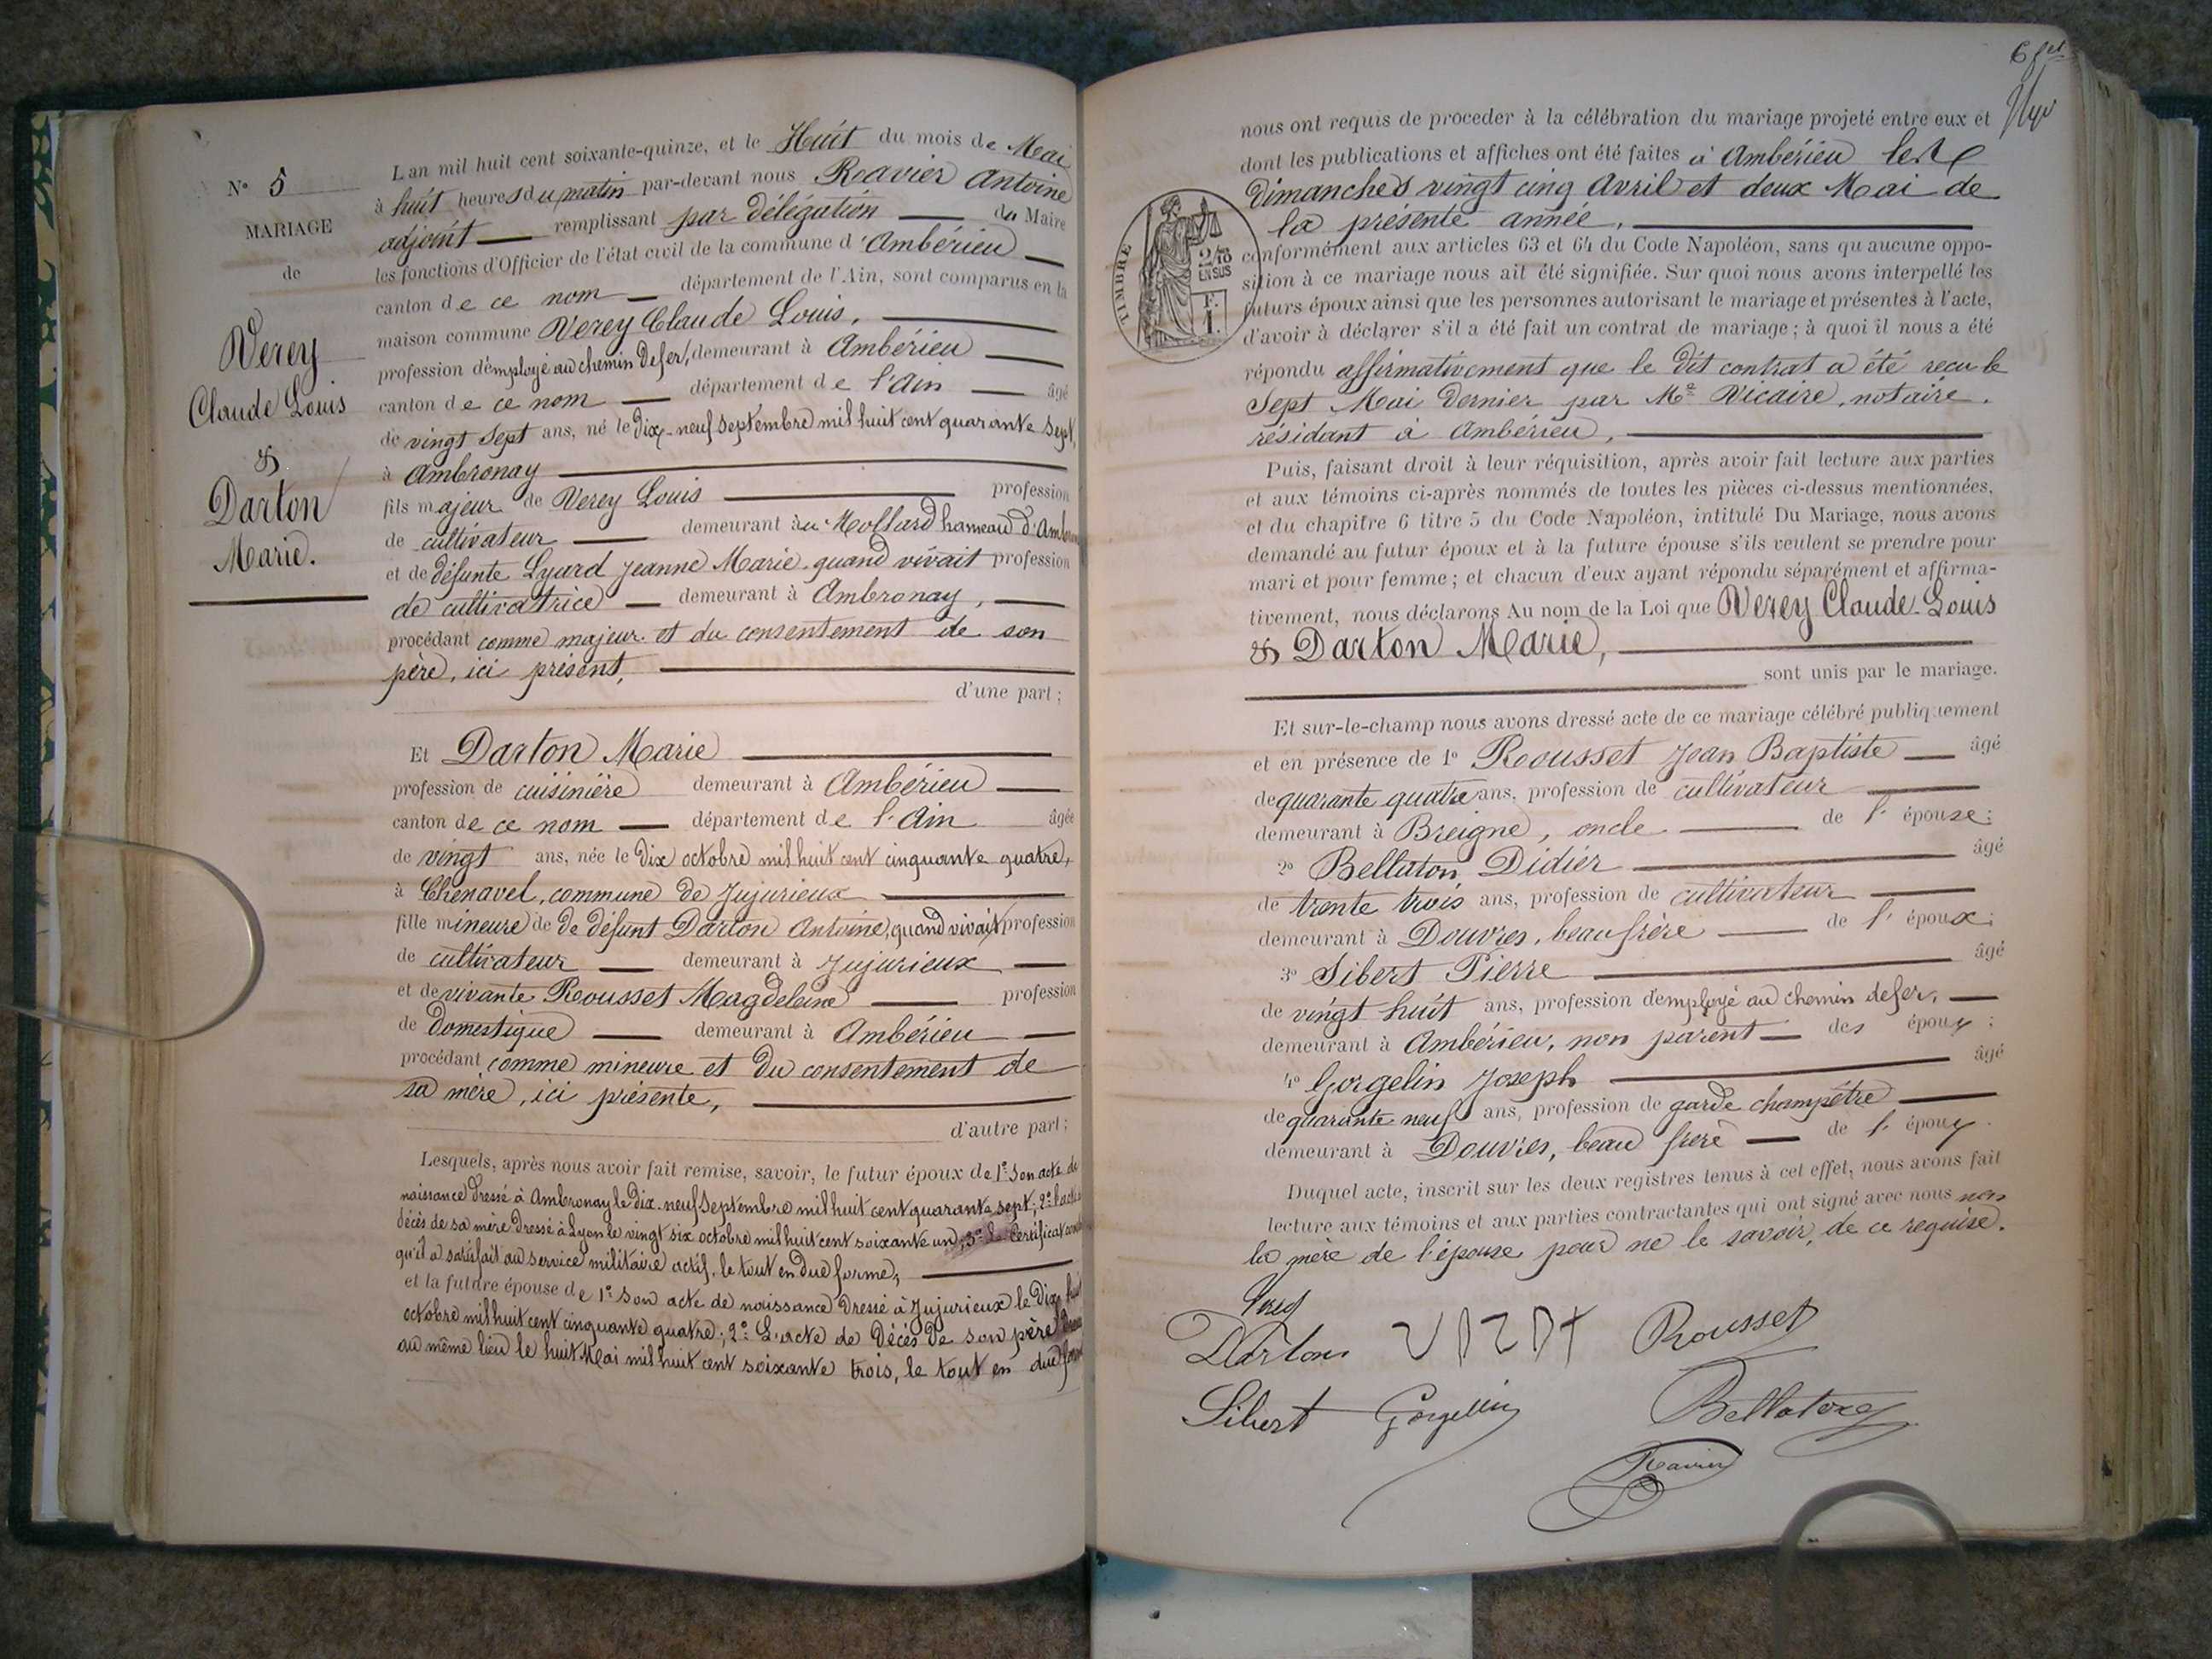 N° 5
MARIAGE
de
Verey
Claude Louis
&
Darton
Marie.
L'an mil huit cent soixante-quinze, et le Huit du mois de Mai
à huit heures du matin par-devant nous Ravier Antoine
adjoint remplissant par délégation du Maire
les fonctions d'Officier de l'état civil de la commune d'Ambérieu
canton de ce nom département de l'Ain, sont comparus en la
maison commune Verey Claude Louis,
profession d'employé au chemin de fer, demeurant à Ambérieu
canton de ce nom département de l'Ain âgé
de vingt sept ans, né le dix-neuf septembre mil huit cent quarante sept,
à Ambronay
fils majeur de Verey Louis profession
de cultivateur demeurant au Mollard hameau d'Ambronay
et de défunte Lyard Jeanne Marie quand vivait profession
de cultivatrice demeurant à Ambronay,
procédant comme majeur et du consentement de son
père, ici présent,
d'une part ;
Et Darton Marie
profession de cuisinière demeurant à Ambérieu
canton de ce nom département de l'Ain âgée
de vingt ans, née le dix octobre mil huit cent cinquante quatre,
à Chenavel, commune de Jujurieux
fille mineure de de défunt Darton Antoine, quand vivait profession
de cultivateur demeurant à Jujurieux
et de vivante Rousset Magdeleine profession
de domestique demeurant à Ambérieu
procédant comme mineure et du consentement de
sa mère, ici présente,
d'autre part ;
Lesquels, après nous avoir fait remise, savoir, le futur époux de 1° Son acte de
naissance dressé à Ambronay le dix-neuf Septembre mil huit cent quarante sept; 2° l'acte
décès de sa mère dressé à Lyon le vingt six octobre mil huit cent soixante un; 3° le Certificat
qu'il a satisfait au service militaire actif, le tout en due forme,
et la future épouse de 1° Son acte de naissance dressé à Jujurieux le dix
octobre mil huit cent cinquante quatre; 2° L'acte de décès de son père
au même lieu le huit Mai mil huit cent soixante trois, le tout en due forme
nous ont requis de proceder à la célébration du mariage projeté entre eux et
dont les publications et affiches ont été faites à Ambérieu les
dimanches vingt cinq Avril et deux Mai de
la présente année,
conformément aux articles 63 et 64 du Code Napoléon, sans qu'aucune oppo-
sition à ce mariage nous ait été signifiée. Sur quoi nous avons interpellé les
futurs époux ainsi que les personnes autorisant le mariage et présentes à l'acte,
d'avoir à déclarer s'il a été fait un contrat de mariage ; à quoi il nous a été
répondu affirmativement que le dit contrat a été reçu le
Sept Mai dernier par Me Vicaire, notaire,
résidant à Ambérieu,
Puis, faisant droit à leur réquisition, après avoir fait lecture aux parties
et aux témoins ci-après nommés de toutes les pièces ci-dessus mentionnées,
et du chapitre 6 titre 5 du Code Napoléon, intitulé Du Mariage, nous avons
demandé au futur époux et à la future épouse s'ils veulent se prendre pour
mari et pour femme ; et chacun d'eux ayant répondu séparément et affirma-
tivement, nous déclarons Au nom de la Loi que Verey Claude-Louis
& Darton Marie,
sont unis par le mariage.
Et sur-le-champ nous avons dressé acte de ce mariage célébré publiquement
et en présence de 1° Rousset Jean Baptiste âgé
de quarante quatre ans, profession de cultivateur
demeurant à Breigne, oncle de l'épouse ;
2° Bellaton Didier âgé
de trente trois ans, profession de cultivateur
demeurant à Douvres, beau frère de l'époux ;
3° Sibert Pierre âgé
de vingt huit ans, profession d'employé au chemin de fer,
demeurant à Ambérieu, non parent des époux ;
4° Gorgelin Joseph âgé
de quarante neuf ans, profession de garde champêtre
demeurant à Douvres, beau frère de l'époux.
Duquel acte, inscrit sur les deux registres tenus à cet effet, nous avons fait
lecture aux témoins et aux parties contractantes qui ont signé avec nous non
la mère de l'épouse pour ne le savoir, de ce requise.
Darton Rousset
Sibert Gorgelin Bellaton
Ravier
TIMBRE
2/10
EN SUS
F.
1.